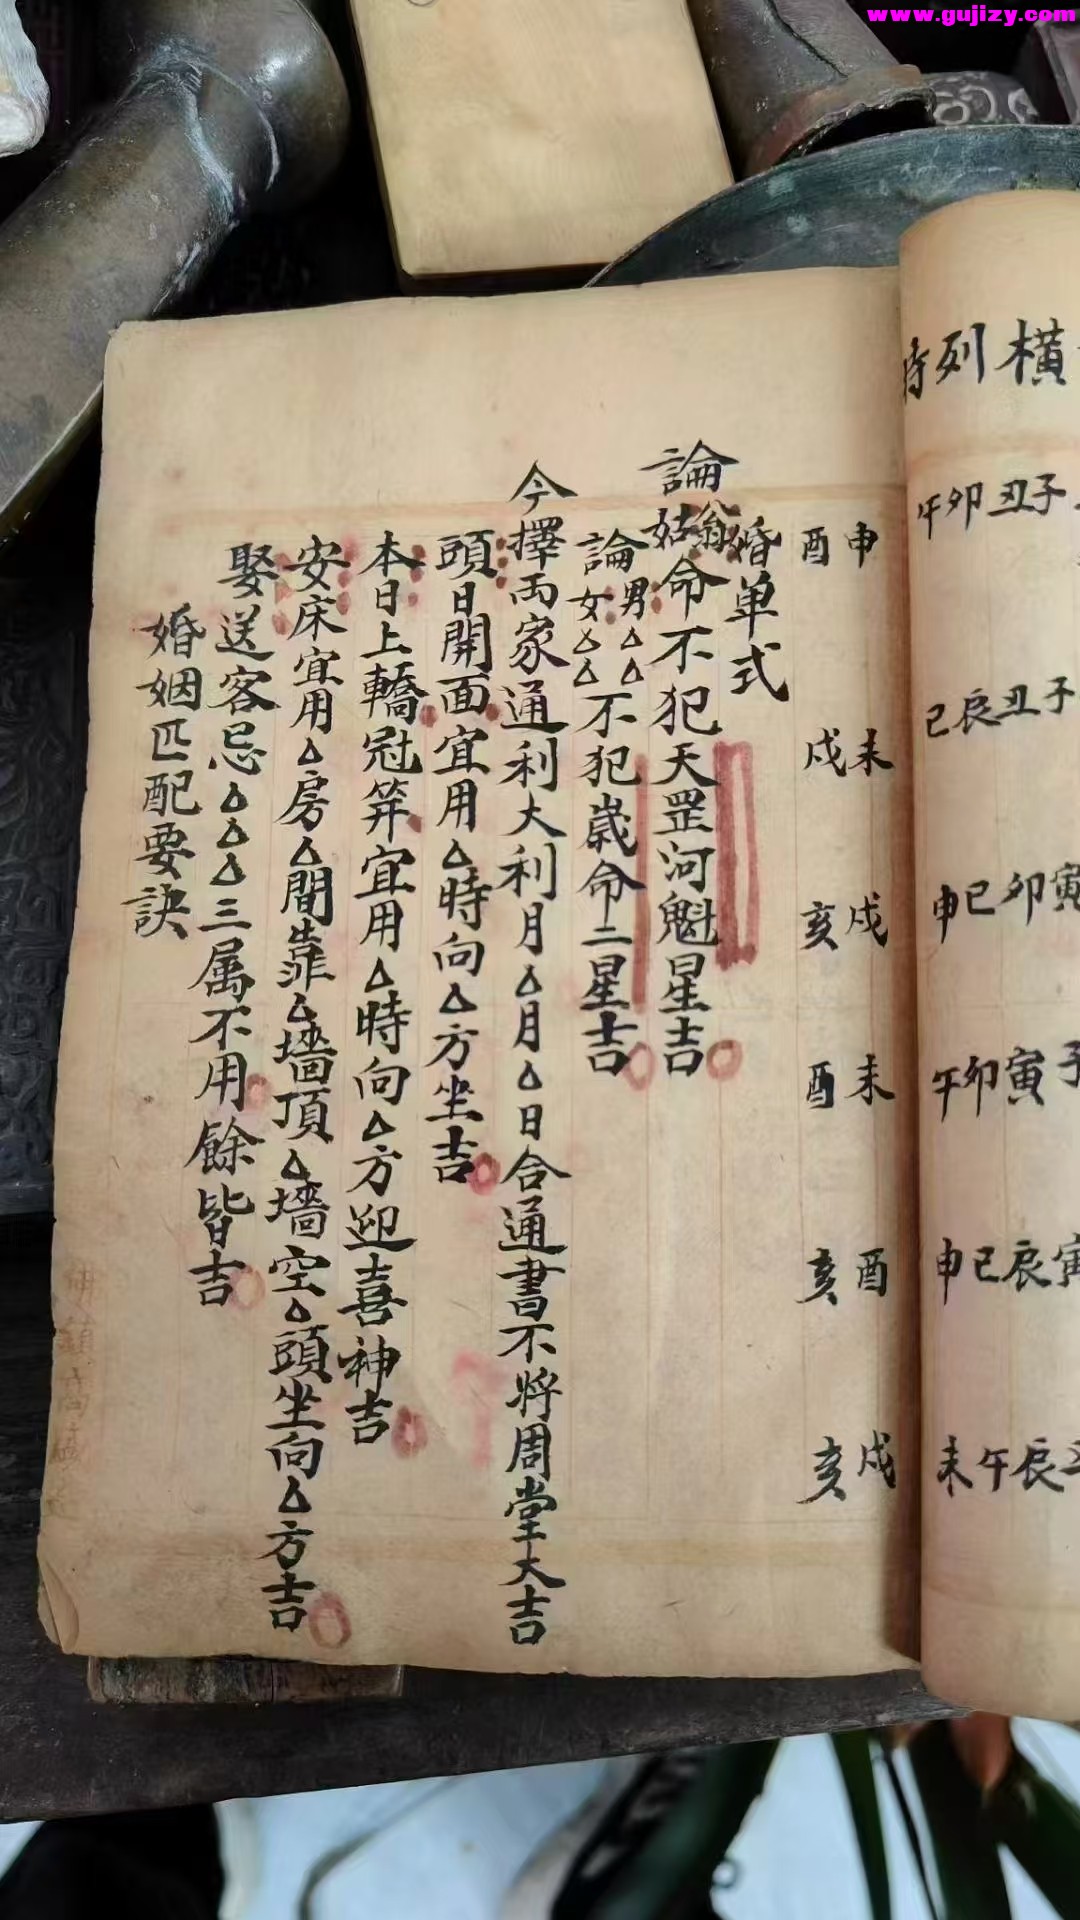 www.gujizy.com
横
列
子 子 寅 子 寅
丑 丑 卯 寅 辰 辰
卯 辰 巳 卯 巳 午
午 巳 申 午 申 未
申 未 戌 未 酉 戌
酉 戌 亥 酉 亥 亥
婚单式
論翁姑命不犯天罡河魁星吉
論男△△女△△不犯歲命二星吉
今擇両家通利大利月△月△日合通書不将周堂大吉
頭日開面宜用△時向△方坐吉
本日上轎冠筓宜用△時向△方迎喜神吉
安床宜用△房△間靠△墻頂△墻空△頭坐向△方吉
娶送客忌△△△三属不用餘皆吉
婚姻匹配要訣